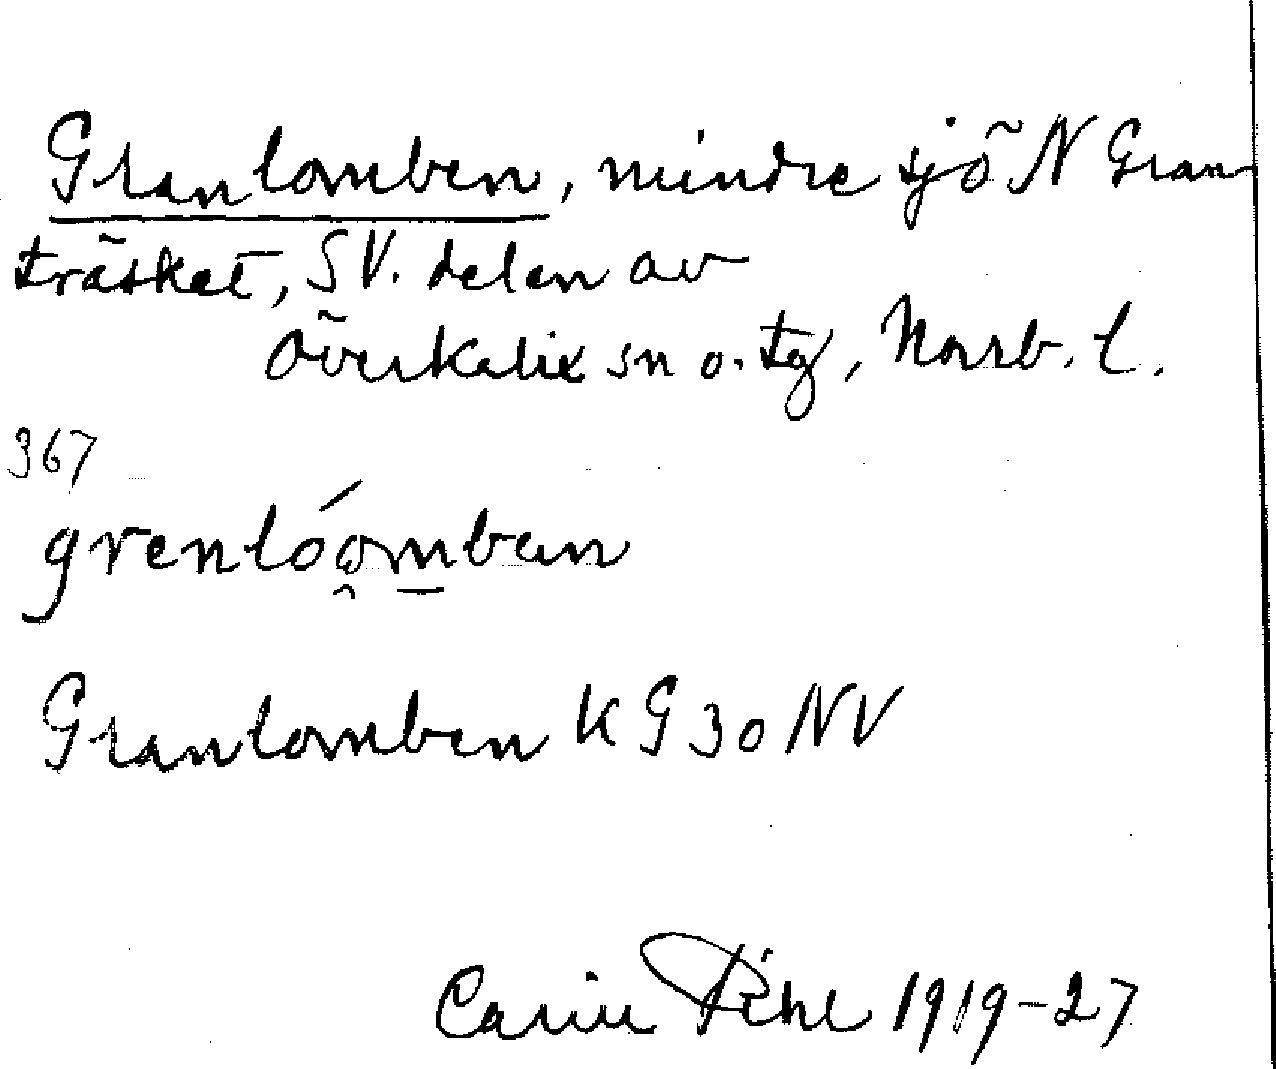 Granlomben, mindre sjö N Gran
träsket, SV. delen av
Överkalix sn o. tg, Norrb. l.
367
grenlóo̯m̲ban
Granlomben KG30NV
Carin Pihl 1919-27